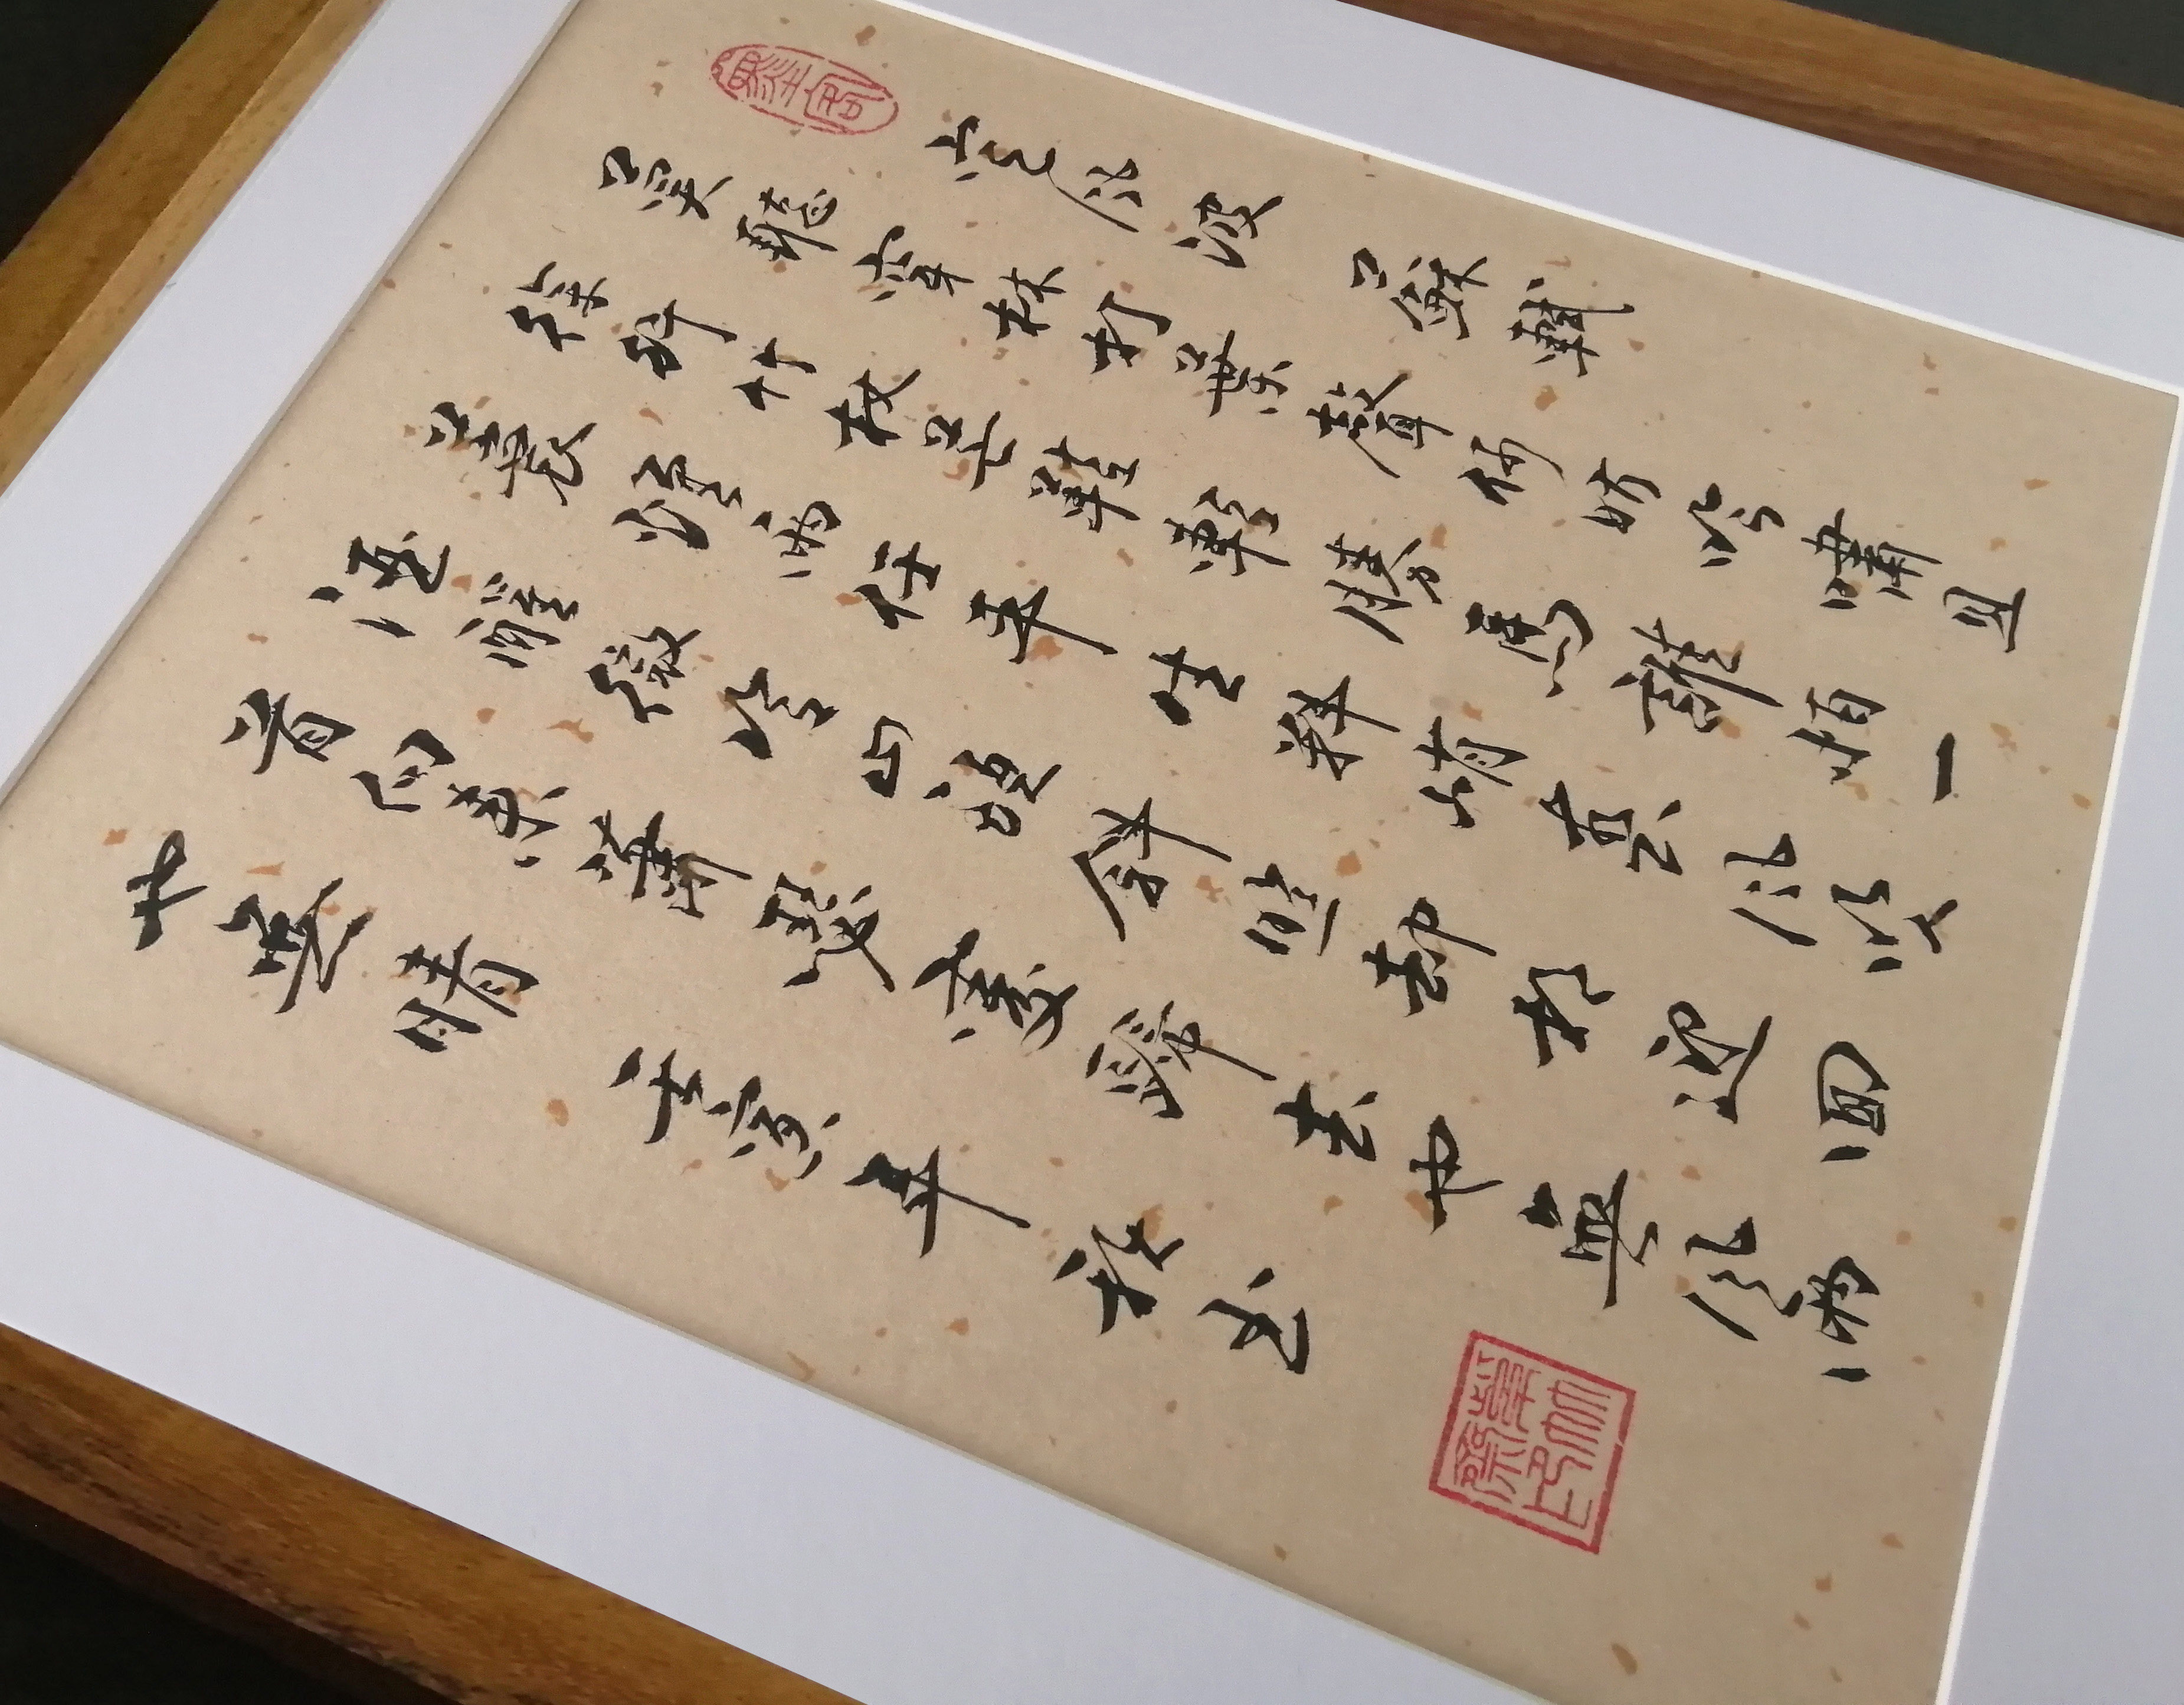 定風波 蘇軾
莫聽穿林打葉聲何妨吟嘯且
徐行竹杖芒鞋輕勝馬誰怕一
蓑煙雨任平生料峭春風吹
酒醒微冷山頭斜照卻相迎回
首向來蕭瑟處歸去也無風雨
也無晴 壬寅年秋书